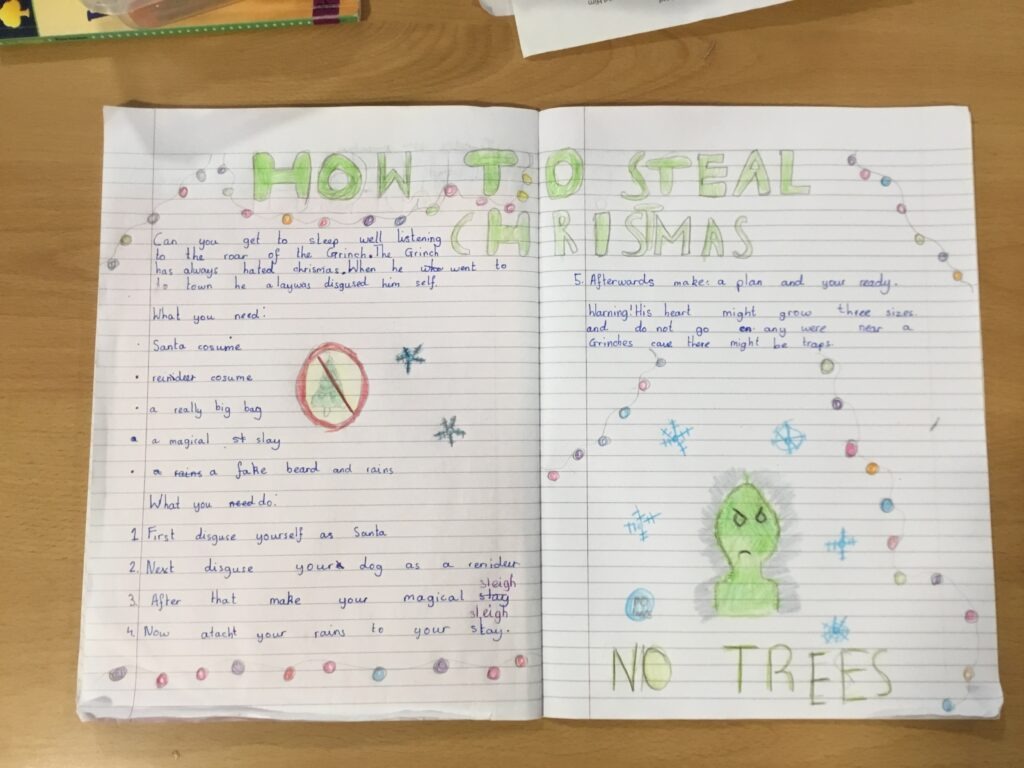 HOW TO STEAL
CHRISTMAS
Can you get to sleep well listening
to the roar of the Grinch. The Grinch
has always hated chrismas. When he who went to
to town he alaywas disgused him self.
What you need:
Santa cosume
reinideer cosume
a really big bag
a magical st slay
a rains a fake beard and rains
What you need do:
1. First disguse yourself as Santa
2. Next disguse your dog as a renideer
sleigh
3. After that make your magical slay
sleigh
4. Now atacht your rains to your slay.
5. Afterwards make a plan and your ready.
Warning! His heart might grow three sizes.
and do not go en any were near a
Grinches cave there might be traps.
NO TREES